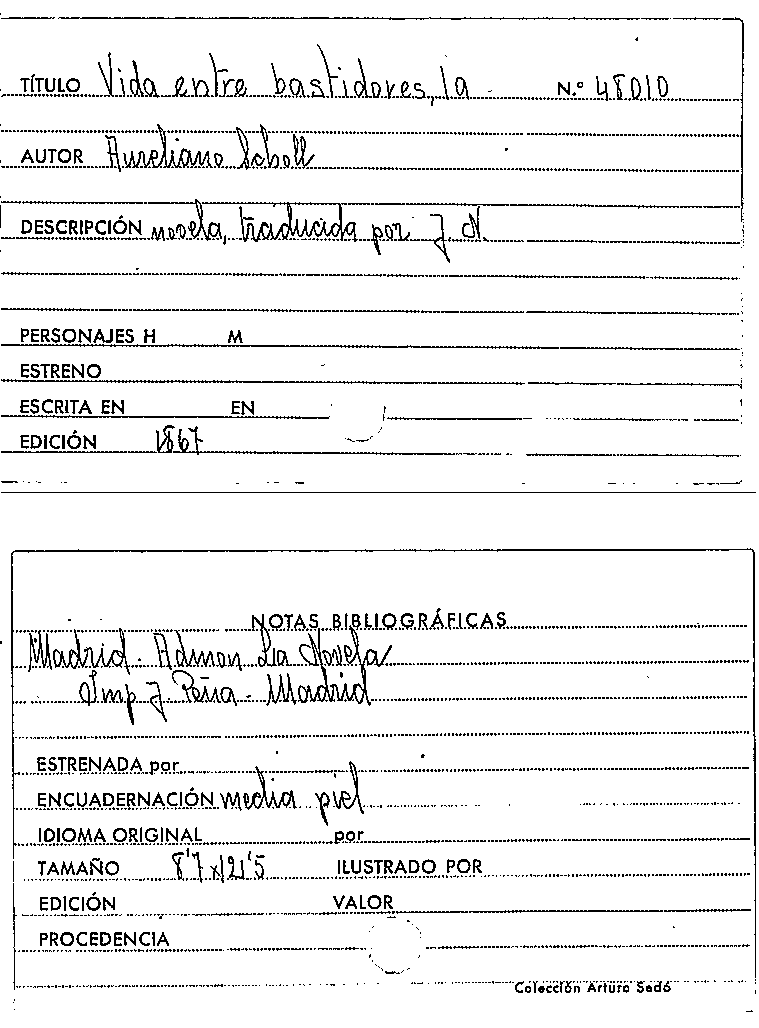 TÍTULO Vida entre bastidores, la N.º 48010
AUTOR Aureliano Scholl
DESCRIPCIÓN novela, traducida por J. N.
PERSONAJES H M
ESTRENO
ESCRITA EN EN
EDICIÓN 1867
NOTAS BIBLIOGRÁFICAS
Madrid. Admon La Novela
Imp J Peña - Madrid
ESTRENADA por
ENCUADERNACIÓN media piel
IDIOMA ORIGINAL por
TAMAÑO 8'7 x 21'5 ILUSTRADO POR
EDICIÓN VALOR
PROCEDENCIA
Colección Arturo Sedó